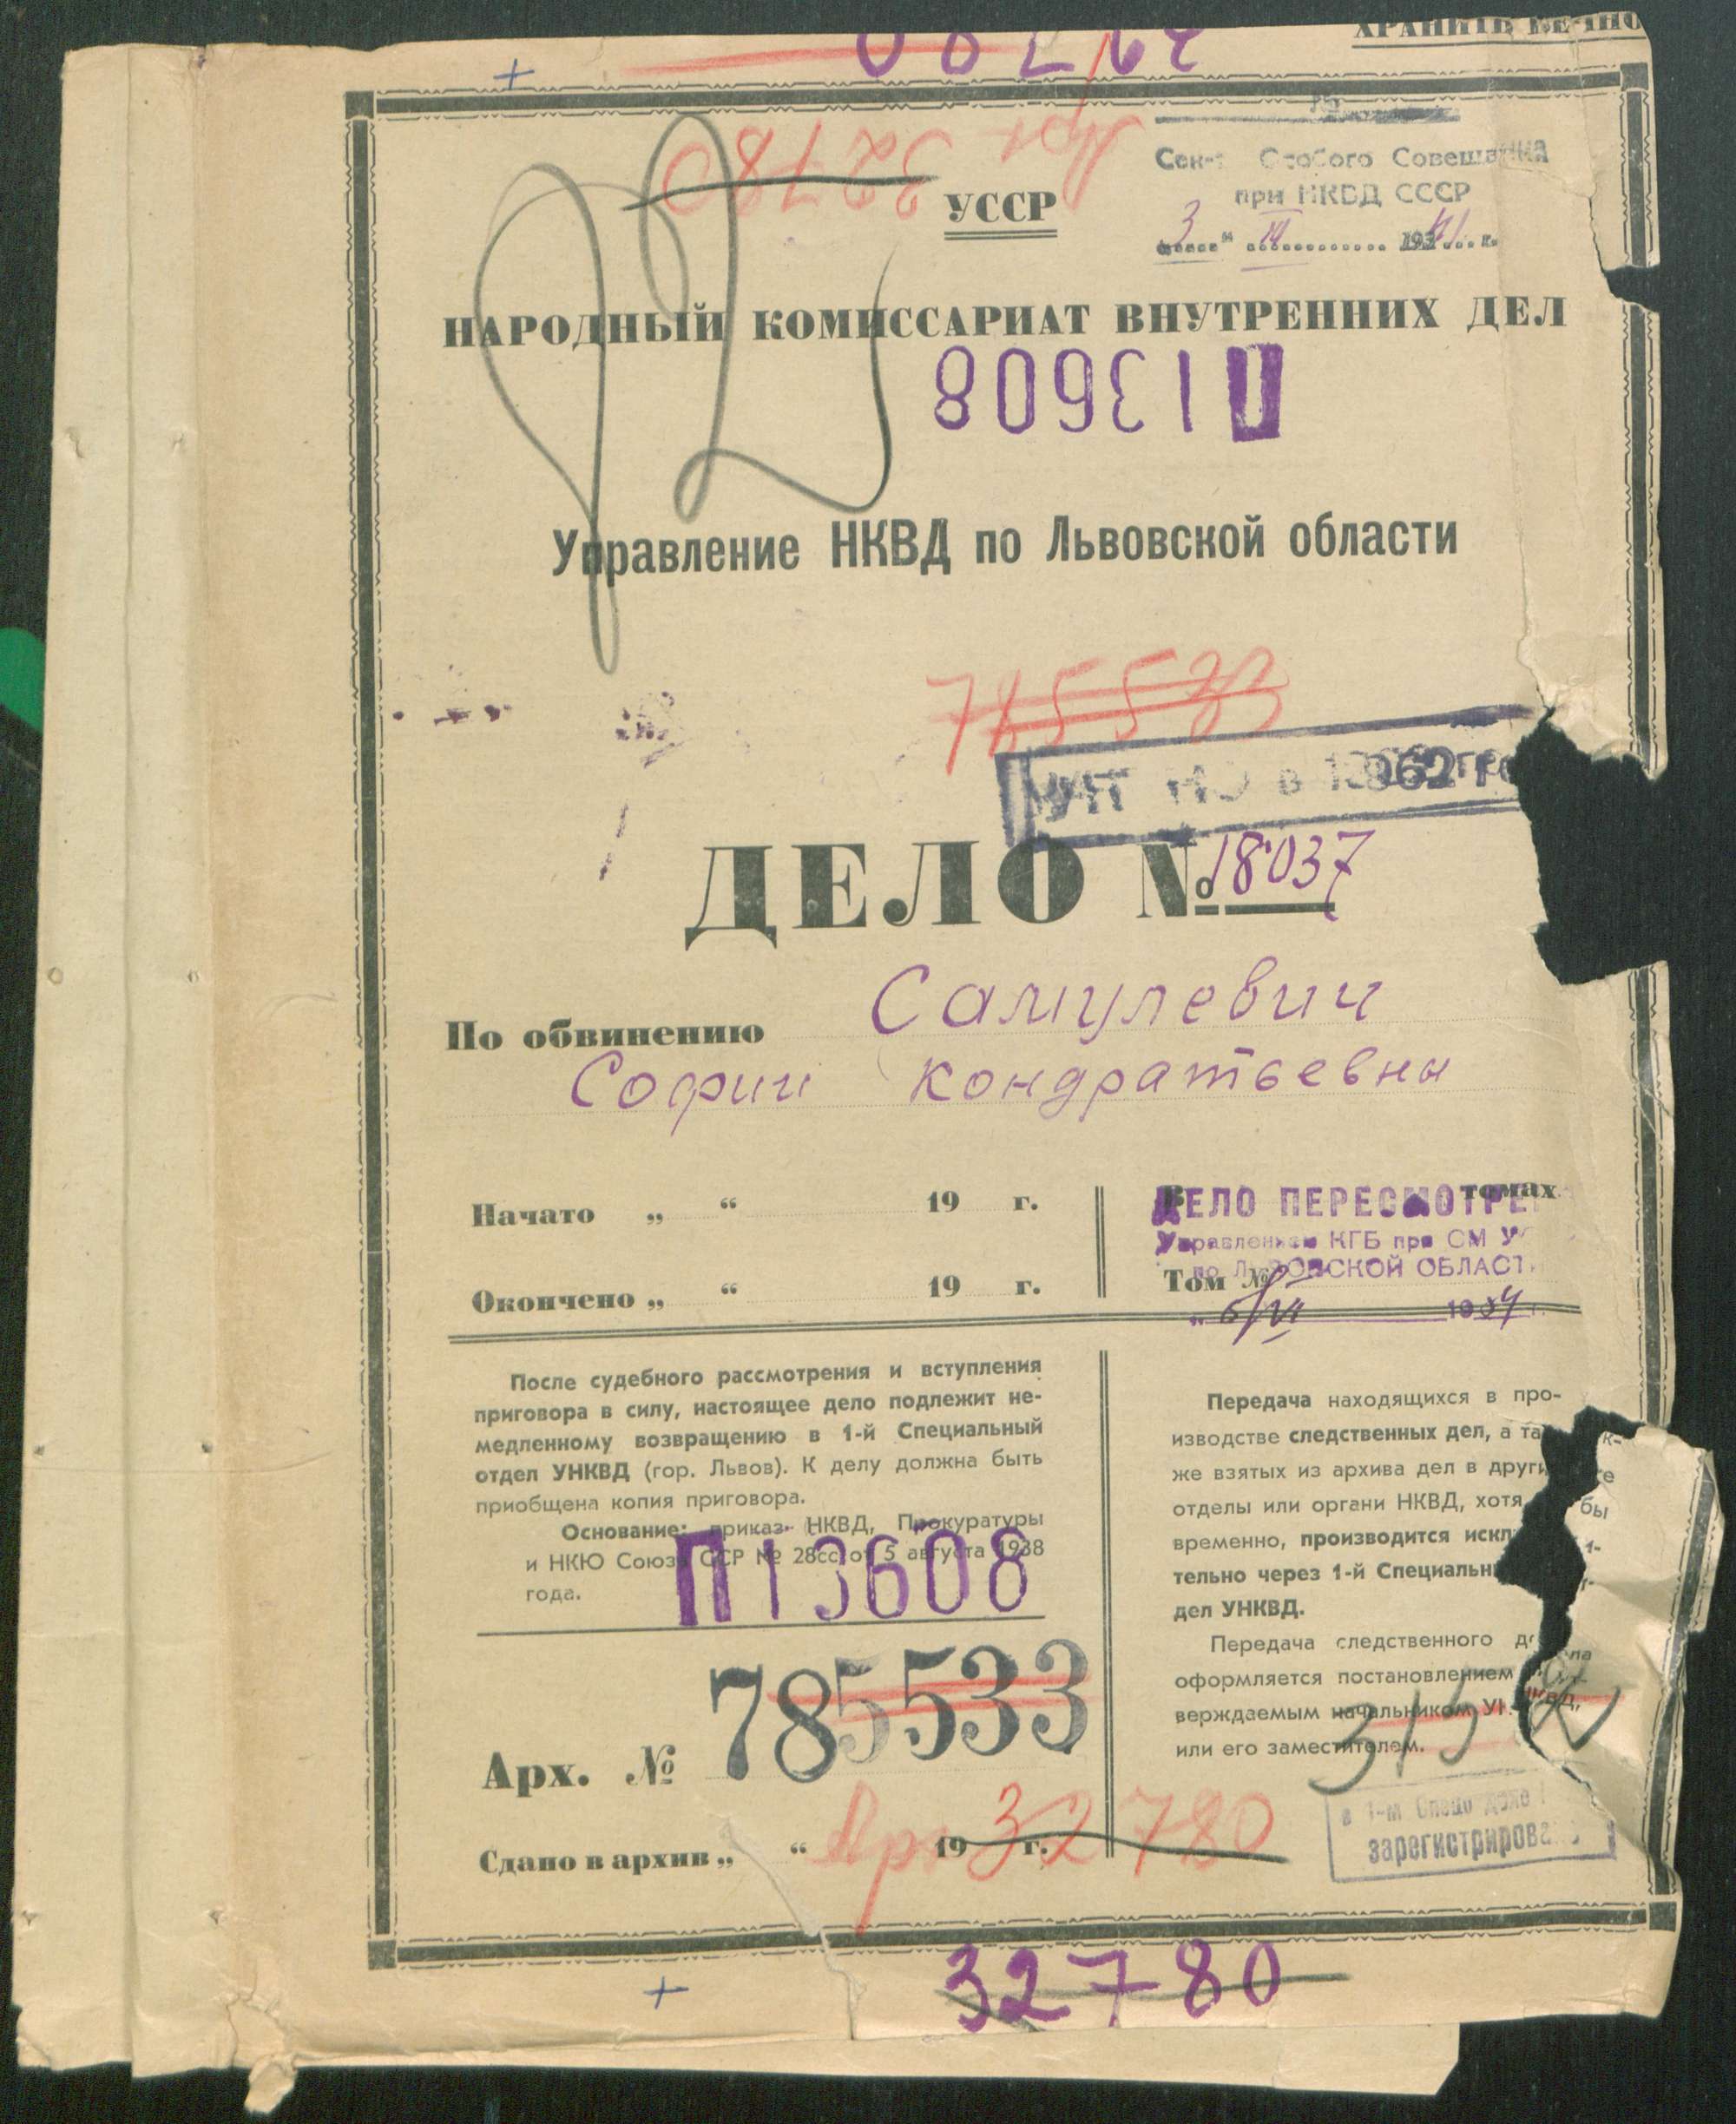 ХРАНИТЬ ВЕЧНО
32780
Арх 32780
УССР
Особого Совещания
при НКВД СССР
3 III 1941 г.
НАРОДНЫЙ КОМИССАРИАТ ВНУТРЕННИХ ДЕЛ
П13608
Управление НКВД по Львовской области
785533
в 1962 го
ДЕЛО № 18037
По обвинению Самулевич
Софии Кондратьевны
Начато „ “ 19 г.
Окончено „ “ 19 г.
В томах
Том №
ДЕЛО ПЕРЕСМОТРЕ
Управлением КГБ при СМ У
по ЛЬВОВСКОЙ ОБЛАСТ
„ 6/VI 1954 г.
После судебного рассмотрения и вступления
приговора в силу, настоящее дело подлежит не-
медленному возвращению в 1-й Специальный
отдел УНКВД (гор. Львов). К делу должна быть
приобщена копия приговора.
Основание: приказ НКВД, Прокуратуры
и НКЮ Союза ССР № 28сс от 5 августа 1938
года.
П13608
Арх. № 785533
Сдано в архив „ “ 19 г.
Арх 32780
Передача находящихся в про-
изводстве следственных дел, а так-
же взятых из архива дел в другие
отделы или органи НКВД, хотя бы
временно, производится искл
тельно через 1-й Специальн
дел УНКВД.
Передача следственного дела
оформляется постановлением
верждаемым начальником УНКВД,
или его заместителем.
в 1-м Спецотделе
зарегистрирова
32780